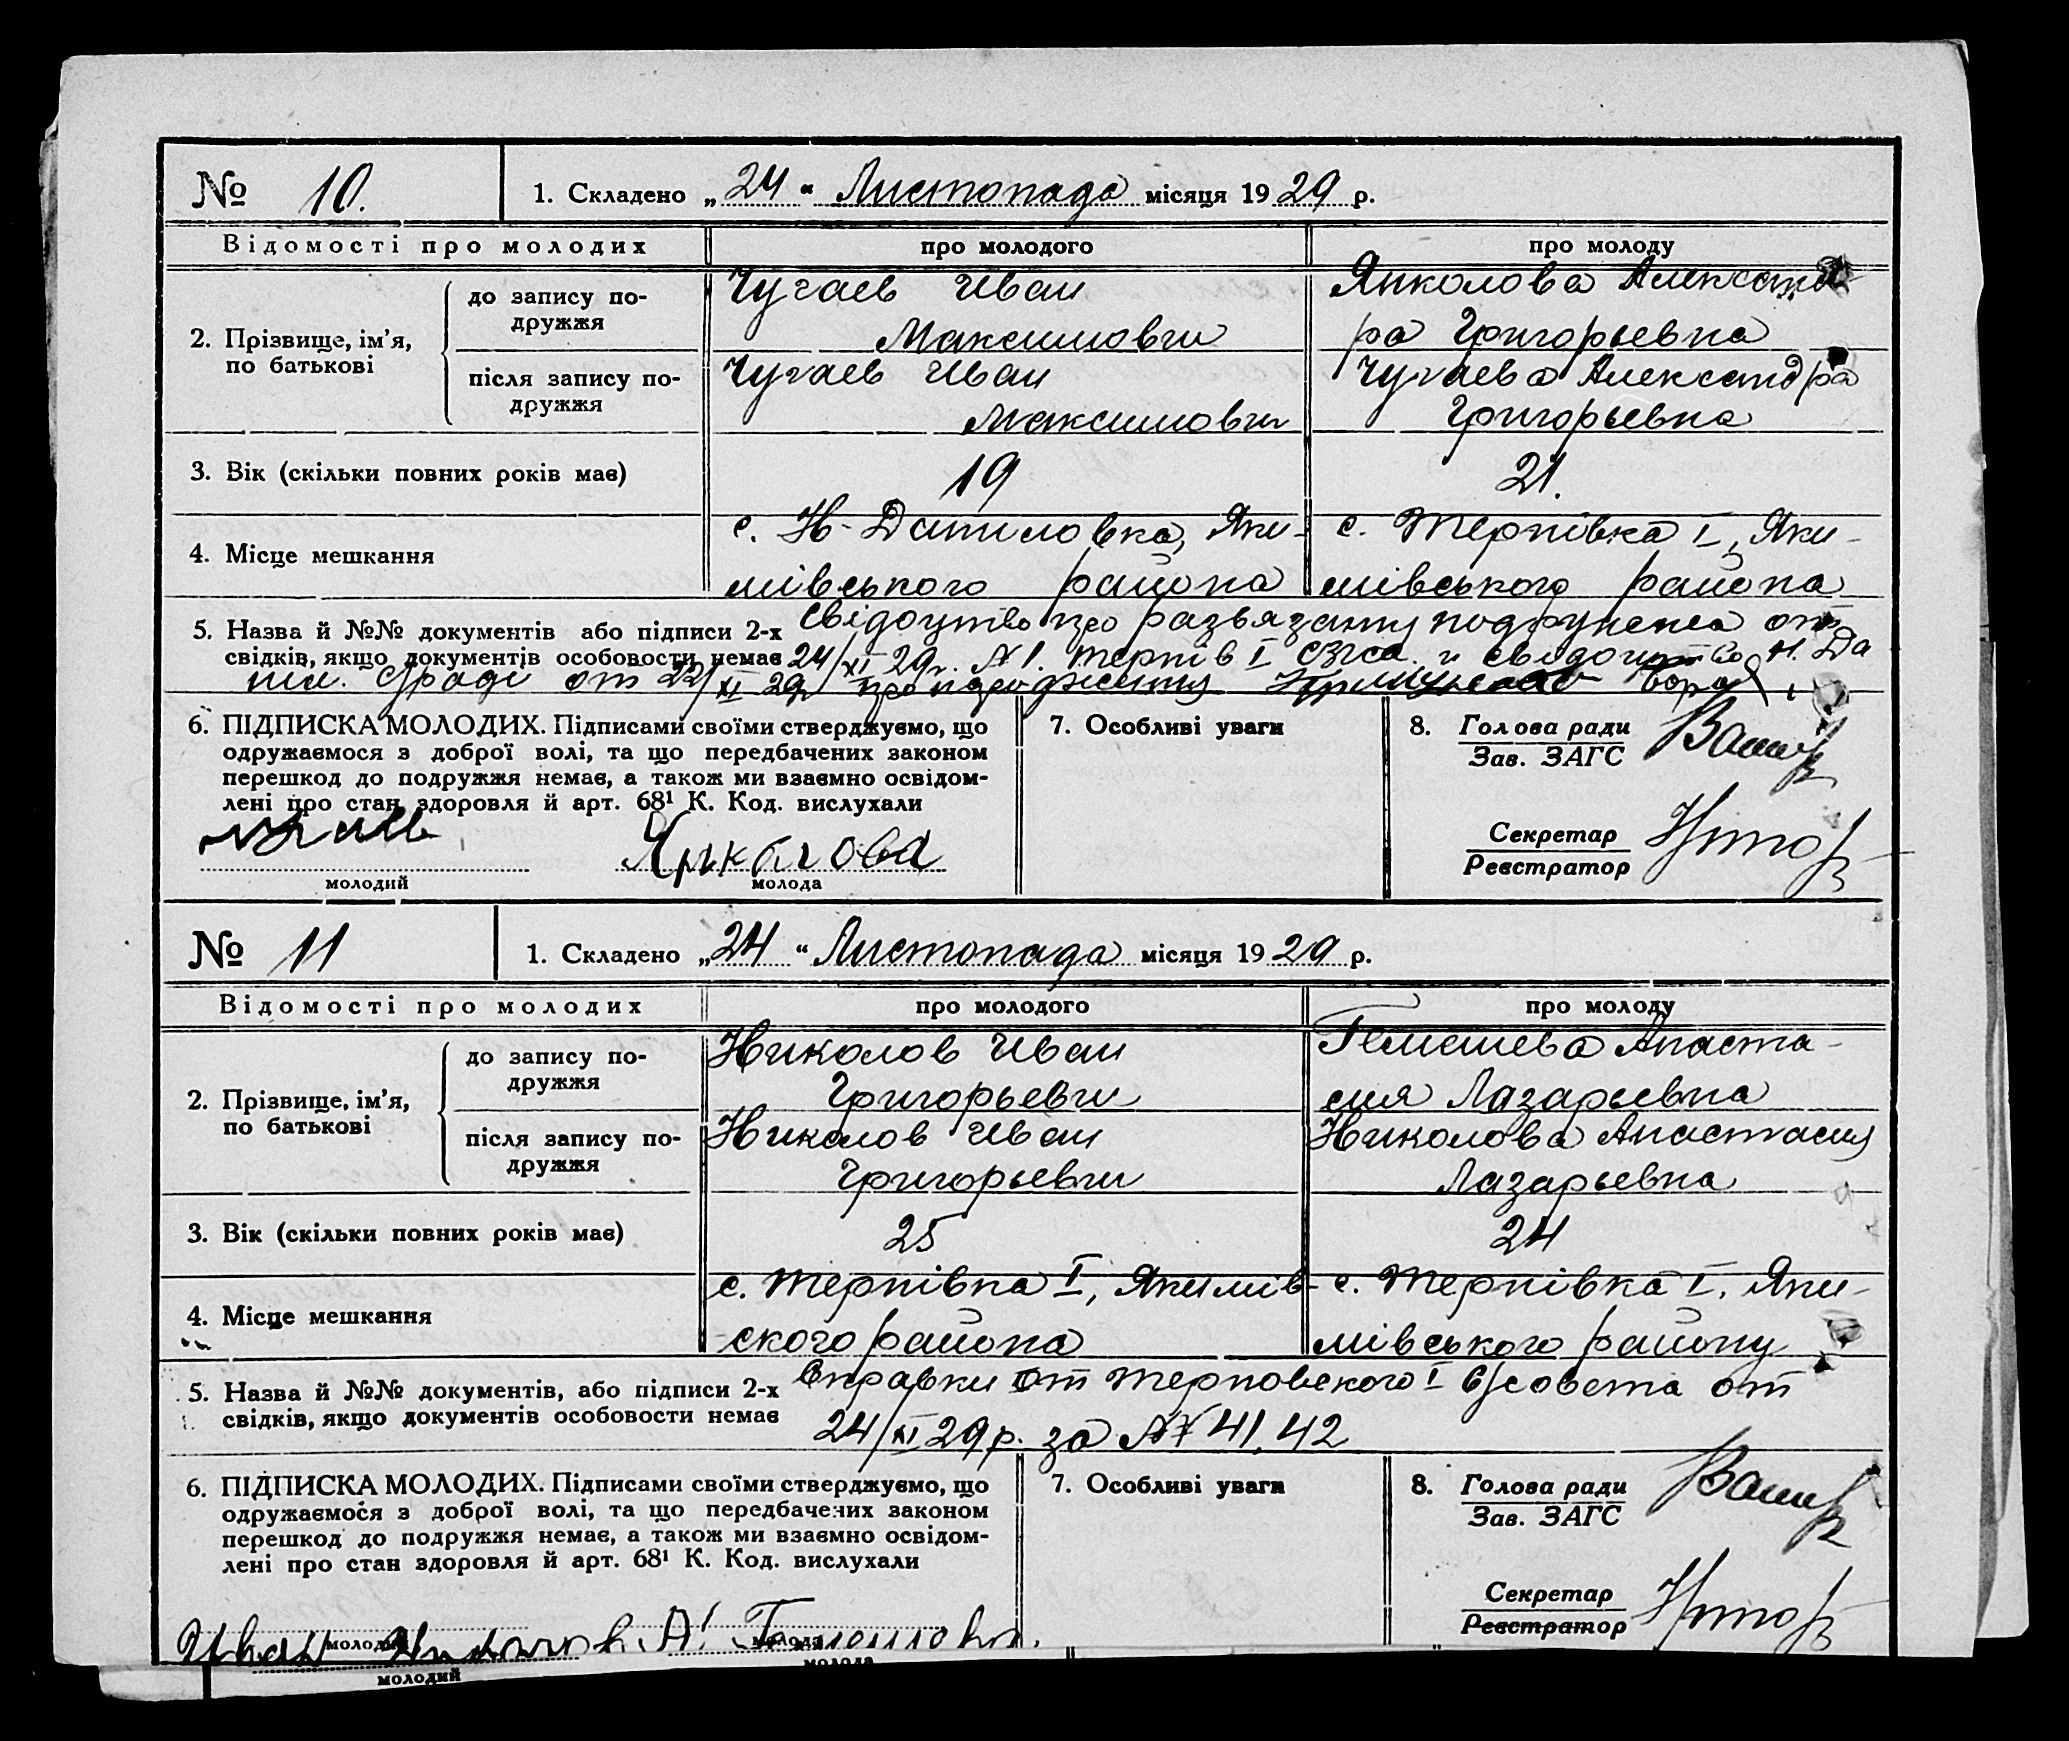 № 10. 1. Складено „24“ Листопада місяця 1929 р.
Відомості про молодих про молодого про молоду
2. Прізвище, ім'я, по батькові
до запису подружжя
Чугаев Иван
Максимович
Янколова Александ
ра Григорьевна
після запису подружжя
Чугаев Иван
Максимович
Чугаева Александра
Григорьевна
3. Вік (скільки повних років має) 19 21.
4. Місце мешкання
с. Н-Даниловка, Яки-
мівського района
с. Терпівка I, Яки-
мівського района
5. Назва й №№ документів або підписи 2-х
свідків, якщо документів особовости немає
свідоцтво про развязану от
24/XI 29р. №1. Терпів I и Н. Да
нил. с/раді от 22/XI 29р про
6. ПІДПИСКА МОЛОДИХ. Підписами своїми стверджуємо, що
одружаємося з доброї волі, та що передбачених законом
перешкод до подружжя немає, а також ми взаємно освідом-
лені про стан здоровля й арт. 68¹ К. Код. вислухали
Янколова
молодий молода
7. Особливі уваги
8. Голова ради
Зав. ЗАГС
Секретар
Реєстратор
№ 11 1. Складено „24“ Листопада місяця 1929 р.
Відомості про молодих про молодого про молоду
2. Прізвище, ім'я, по батькові
до запису подружжя
Николов Иван
Григорьевич
Гемешева Анаста-
сия Лазарьевна
після запису подружжя
Николов Иван
Григорьевич
Николова Анастасия
Лазарьевна
3. Вік (скільки повних років має) 25 24
4. Місце мешкання
с. Терпівка I, Якимів-
ского района
с. Терпівка I, Яки-
мівського району
5. Назва й №№ документів, або підписи 2-х
свідків, якщо документів особовости немає
Справки от Терповского I с/совета от
24/XI 29р. за № 41, 42
6. ПІДПИСКА МОЛОДИХ. Підписами своїми стверджуємо, що
одружаємося з доброї волі, та що передбачених законом
перешкод до подружжя немає, а також ми взаємно освідом-
лені про стан здоровля й арт. 68¹ К. Код. вислухали
Иван Николов А.
молодий молода
7. Особливі уваги
8. Голова ради
Зав. ЗАГС
Секретар
Реєстратор
молодий молода